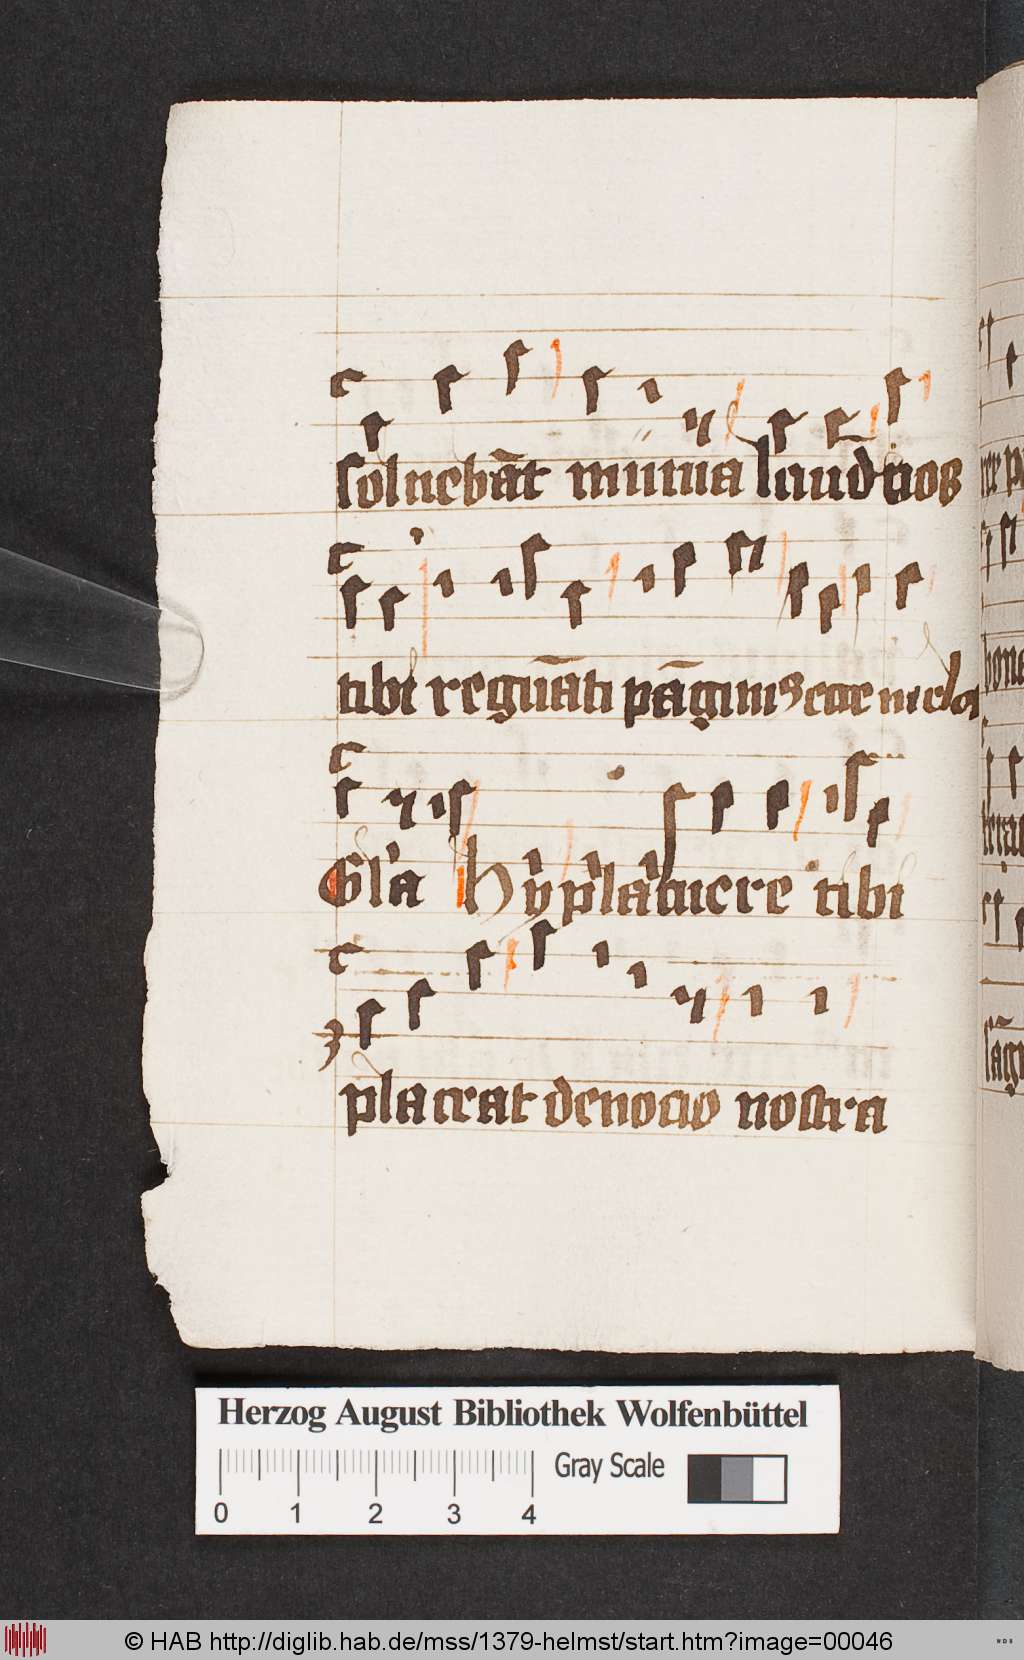 solueba̅t munia laud̅ nos
tibi regna̅ti pa̅gimus ecce melo
Gl'a Hy placuere tibi
placeat deuocio nostra
Herzog August Bibliothek Wolfenbüttel
0 1 2 3 4
Gray Scale
© HAB http://diglib.hab.de/mss/1379-helmst/start.htm?image=00046